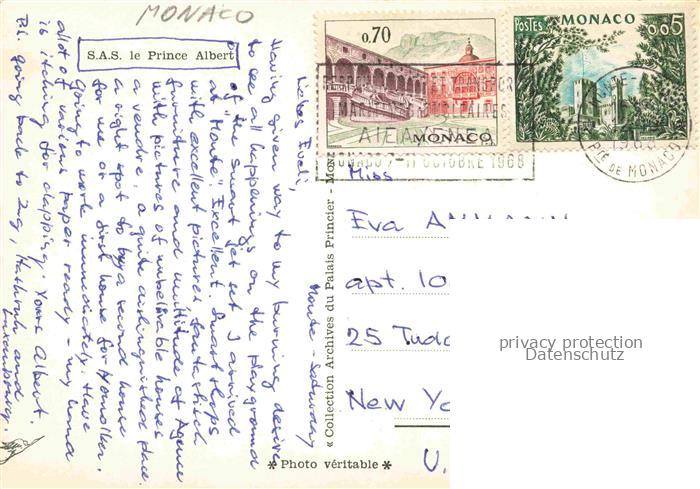 MONACO
S.A.S. le Prince Albert
Monte - Saturday
Having given way to my burning desire
to see all happenings on the playground
of the smart jet set I arrived
at "Monte" Excellent. Smart shops
with excellent pictures
furniture and multitude of Agence
with pictures of houses
a vendre, a quite distinguished place
a right spot to buy a second house
for me or a first house for
Going to work immediately. Have
allot of various paper ready - my hand
is itching for clapping. Yours Albert.
P.S. going back to Zrg, and
Luxembourg.
« Collection Archives du Palais Princier - Mona
* Photo véritable *
0.70
MONACO
POSTES
MONACO
0.05
MONACO 7-11 OCTOBRE 1968
1968
PTÉ DE MONACO
Miss
Eva
apt. 10
25 Tudo
New Yo
U.
privacy protection
Datenschutz